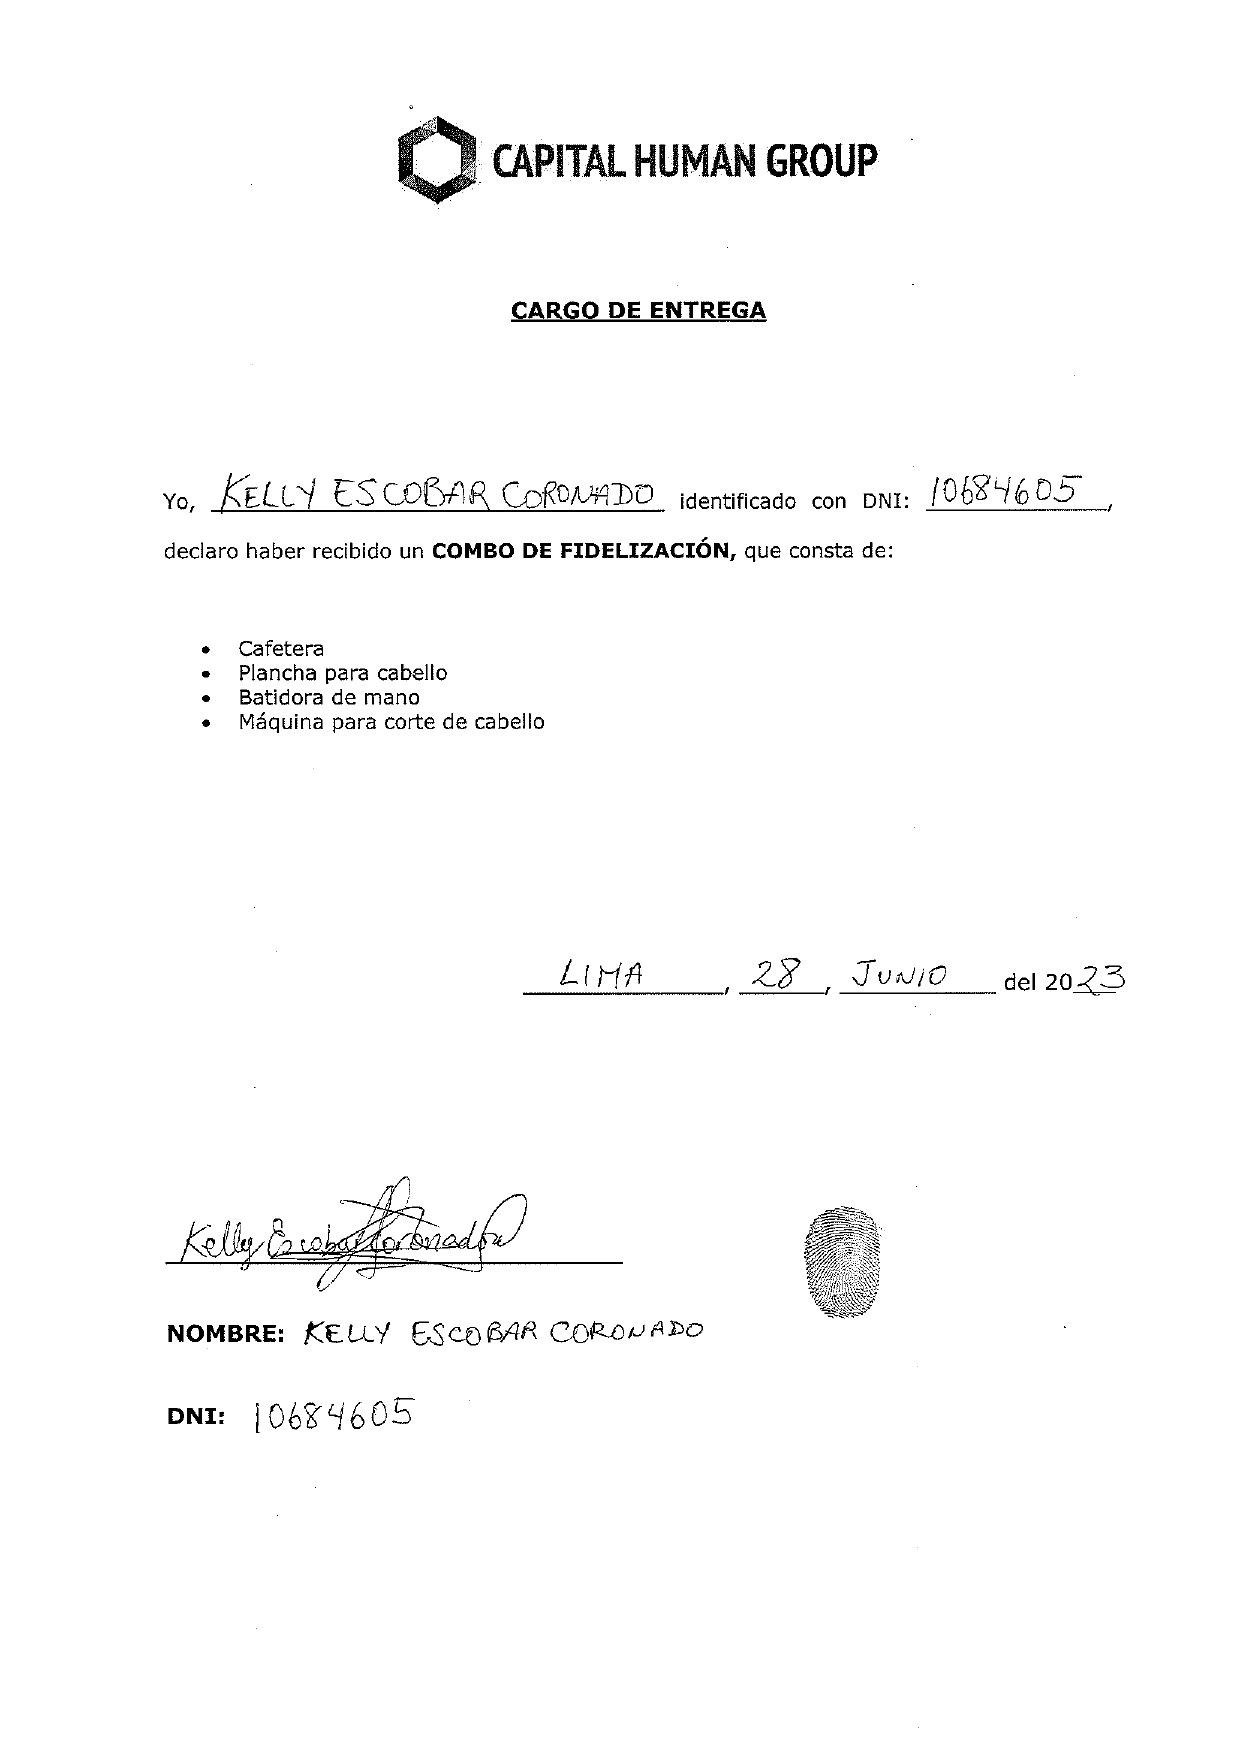 CAPITAL HUMAN GROUP
CARGO DE ENTREGA
Yo, KELLY ESCOBAR CORONADO identificado con DNI: 10684605,
declaro haber recibido un COMBO DE FIDELIZACIÓN, que consta de:
• Cafetera
• Plancha para cabello
• Batidora de mano
• Máquina para corte de cabello
LIMA, 28, JUNIO del 2023
Kelly Escobar Coronado
NOMBRE: KELLY ESCOBAR CORONADO
DNI: 10684605